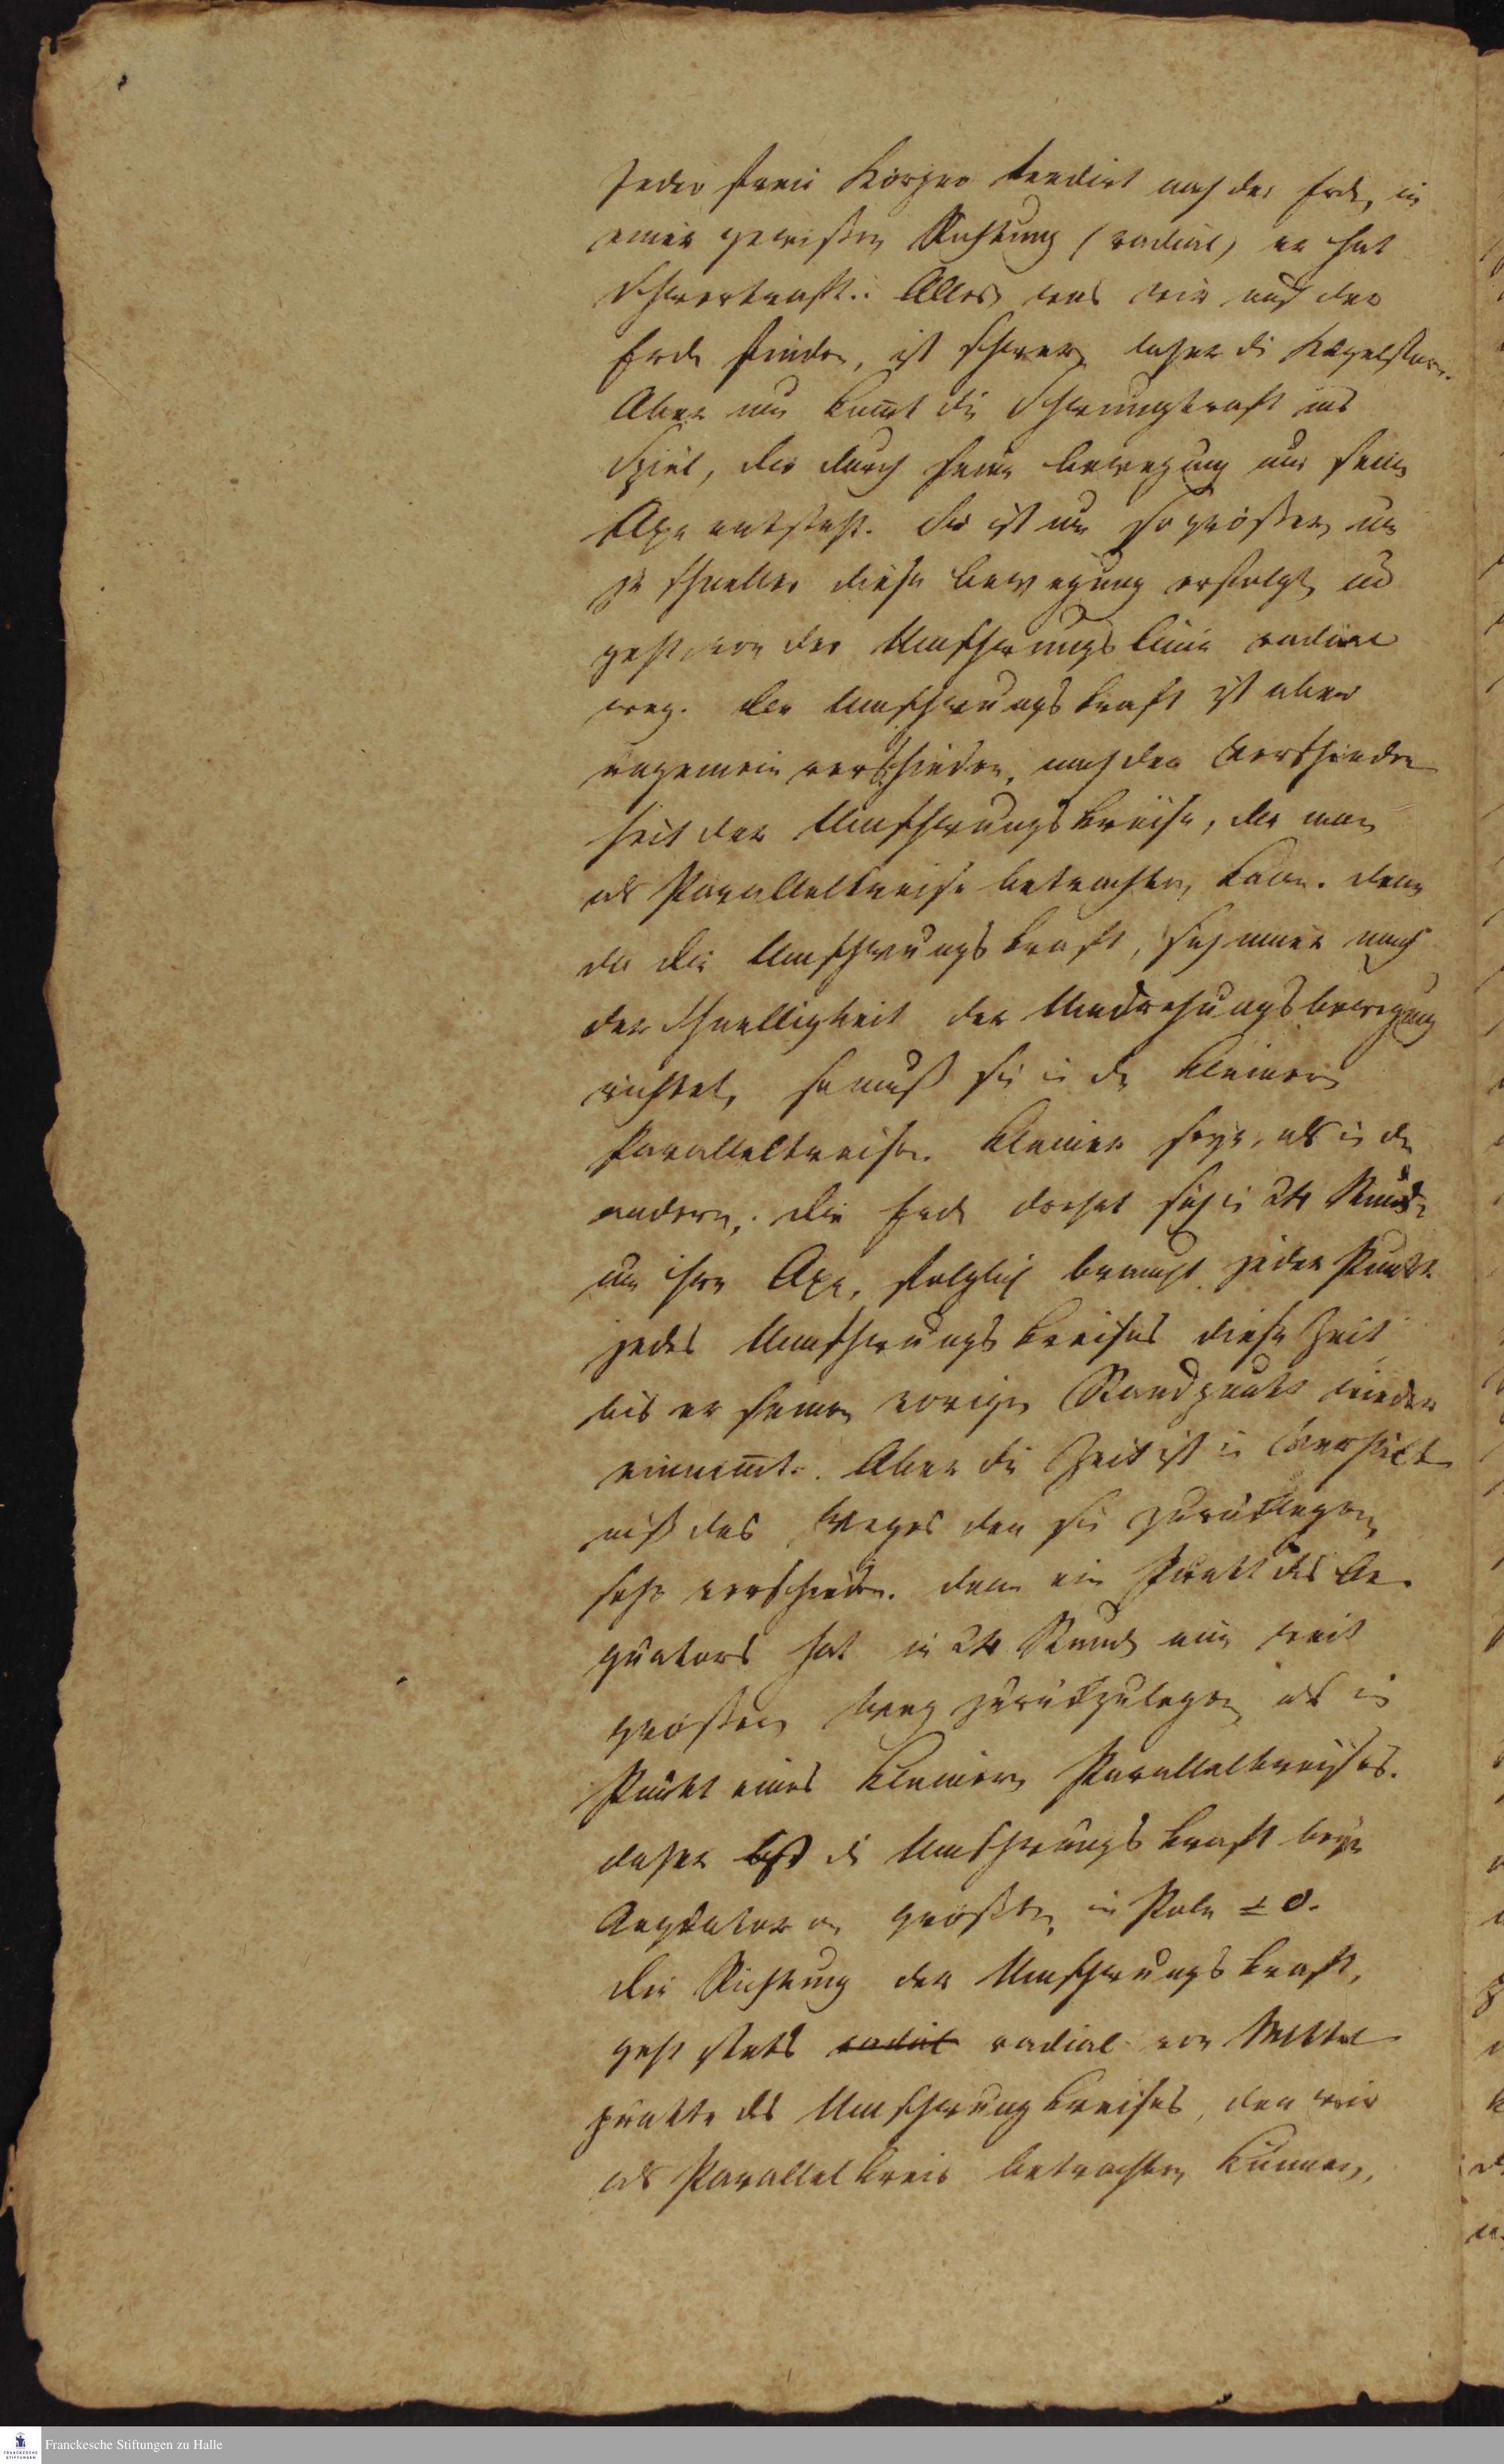 Jeder freie Körper tendirt nach der Erde, in
einer gewissen Richtung (radial) er hat
Schwerkraft. Alles was wir auf der
Erde finden, ist schwer, daher die Kugelform.
Aber nun kom̅t die Schwungkraft ins
Spiel, die durch seine Bewegung um seine
Axe entsteht. Sie ist um so größer, um
je schneller diese Bewegung erfolgt, und
geht von der Umschwungslinie radial
weg. Die Umschwungskraft ist aber
ungemein verschieden, nach der Verschieden
heit der Umschwungskreise, die man
als Parallelkreise betrachten, kann. denn
da die Umschwungskraft, sich immer nach
der Schnelligkeit der Umdrehungsbewegung
richtet, so muß sie in den kleinern
Parallelkreisen kleiner seyn, als in den
andern. Die Erde drehet sich in 24 Stunden
um ihre Axe, folglich braucht jeder Punkt
jedes Umschwungskreises diese Zeit
bis er seinen vorigen Standpunkt wieder
einnim̅t. Aber die Zeit ist in Verhält
niß des Weges den sie zurücklegen,
sehr verschieden. denn ein Punkt des Ae-
quators hat in 24 Stund eine weit
größern Weg zurückzulegen als ein
Punkt eines kleinern Parallelkreises.
daher ist die Umschwungskraft beym
Aequator am größten, im Pole = 0.
Die Richtung der Umschwungskraft,
geht stets radial radial vom Mittel
punkte des Umschwungkreises, den wir
als Parallelkreis betrachten können,
Franckesche Stiftungen zu Halle